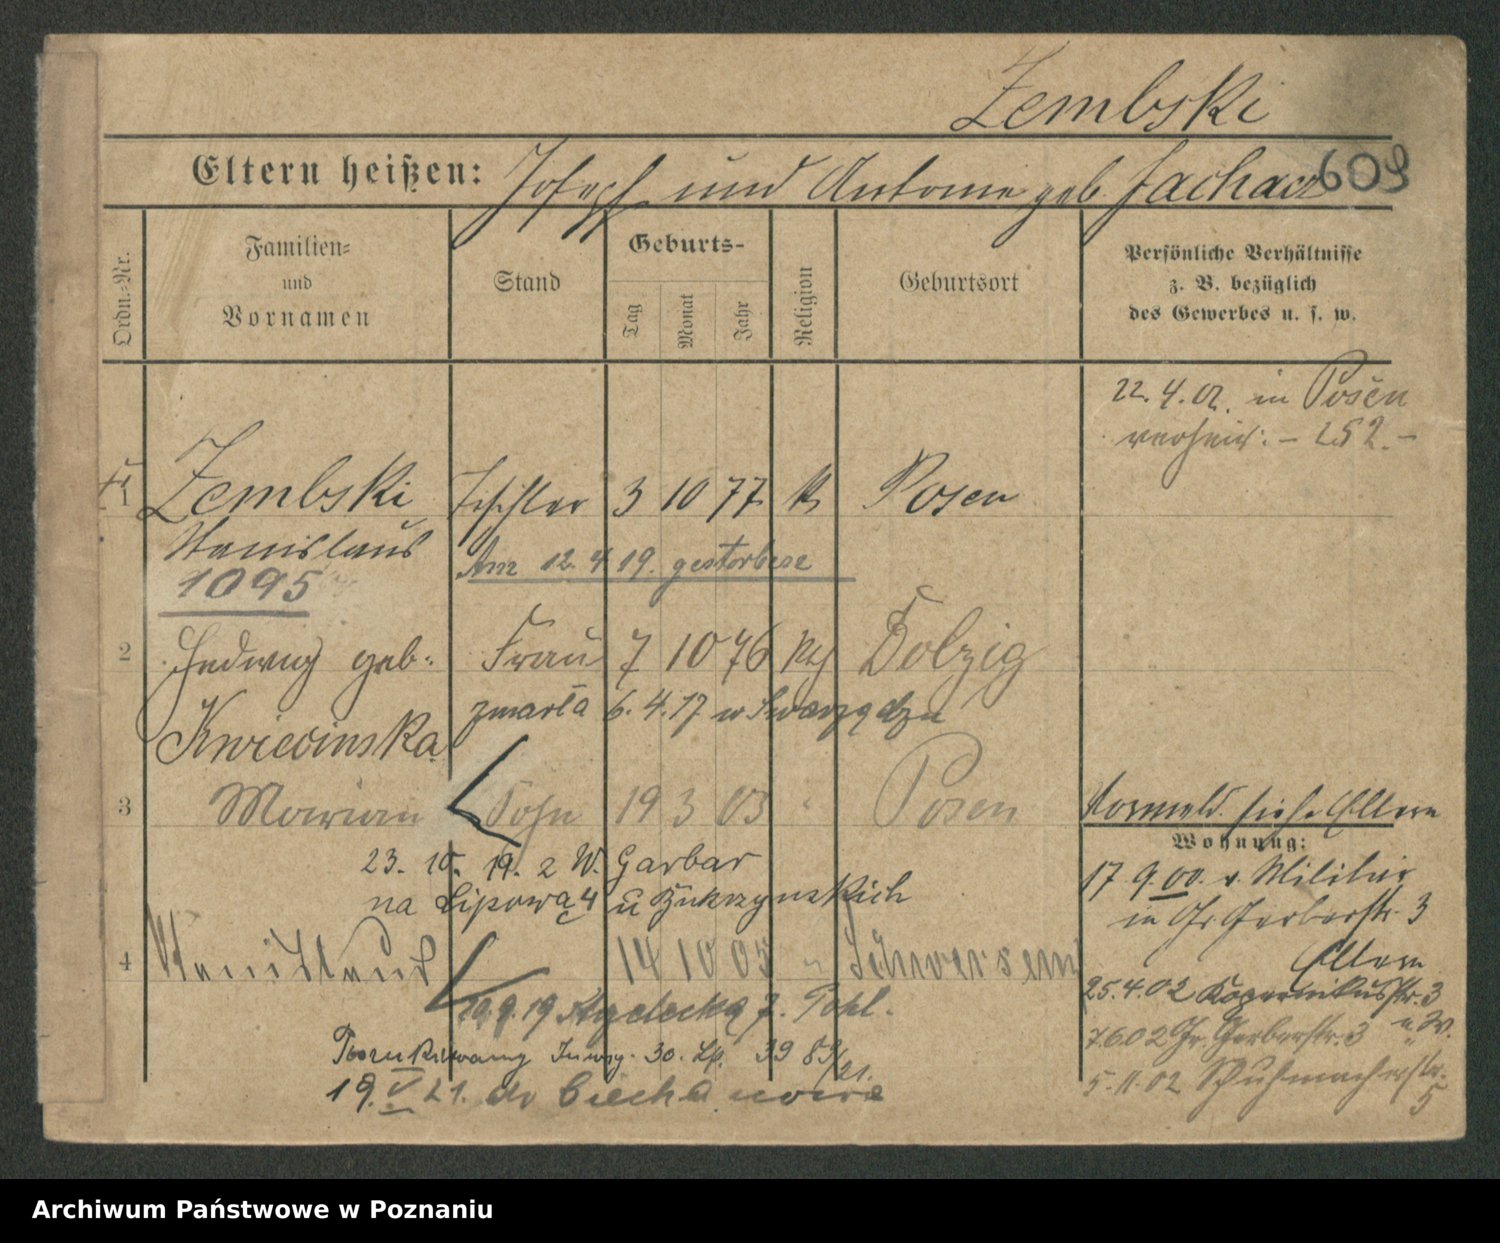 Zembski
609
Eltern heißen: Joseph und Antonie geb. Jachacz
Ordn.-Nr.
Familien- und Vornamen
Stand
Geburts-
Tag
Monat
Jahr
Religion
Geburtsort
Persönliche Verhältnisse
z. B. bezüglich
des Gewerbes u. s. w.
22.4.02. in Posen
verheir. - 252. -
1 Zembski Tischler 3 10 77 k Posen
Stanislaus
Am 12.4.19. gestorben
1095
2 Hedwig geb. Frau 7 10 76 kth Dolzig
zmarła 6.4.17 w Swarzędzu
Kwiecinska
3 Marian Sohn 19 3 03 " Posen
Vormeld. siehe Eltern
Wohnung:
23. 10. 19. 2 W. Garbar
na Lipowa 4 u Bukrzynskich
17 9.00. v. Militär
in Gr. Gerberstr. 3
Eltern
4 Stanislaus 14 10 05 " Schwersenz
25.4.02 Kopernikusstr. 3
7.6.02 Gr. Gerberstr. 3
5.11.02 Schuhmacherstr. 5
19.9.19
Poszukiwany 30. 39 89/21.
19.V.21. do
Archiwum Państwowe w Poznaniu